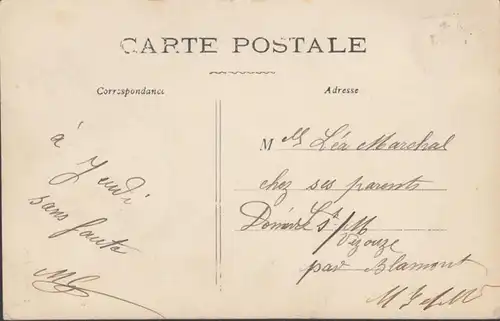 CARTE POSTALE
Correspondance
Adresse
à Jeudi
sans faute
Mlle Léa Marchal
chez ses parents
Domèvre s/
Vezouze
par Blamont
M et M